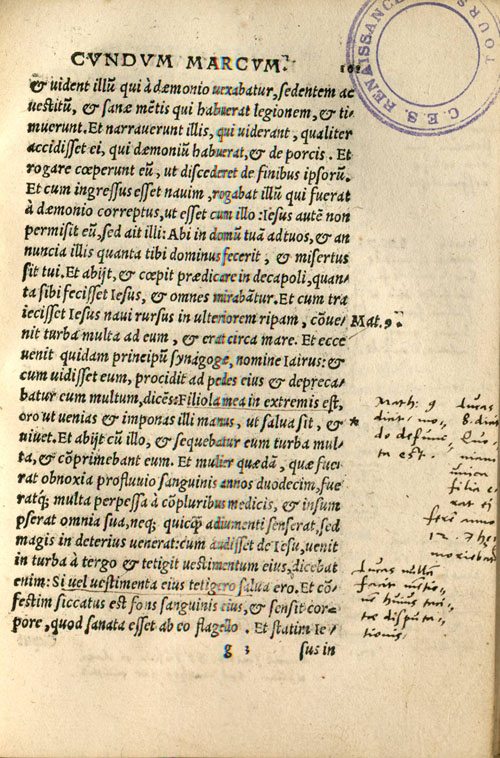 CVNDVM MARCVM.
& uident illũ qui à dæmonio uexabatur, sedentem ac
uestitũ, & sanæ mẽtis qui habuerat legionem, & ti-
muerunt. Et narrauerunt illis, qui uiderant, qualiter
accidisset ei, qui dæmoniũ habuerat, & de porcis. Et
rogare cœperunt eũ, ut discederet de finibus ipsorũ.
Et cum ingressus esset nauim, rogabat illũ qui fuerat
à dæmonio correptus, ut esset cum illo: Iesus autẽ non
permisit eũ, sed ait illi: Abi in domũ tuã ad tuos, & an
nuncia illis quanta tibi dominus fecerit, & misertus
sit tui. Et abijt, & cœpit prædicare in decapoli, quan-
ta sibi fecisset Iesus, & omnes mirabãtur. Et cum tra
iecisset Iesus naui rursus in ulteriorem ripam, cõue-
nit turba multa ad eum, & erat circa mare. Et ecce
uenit quidam principũ synagogæ, nomine Iairus: &
cum uidisset eum, procidit ad pedes eius & depreca-
batur eum multum, dicẽs: Filiola mea in extremis est,
oro ut uenias & imponas illi manus, ut salua sit, &
uiuet. Et abijt cũ illo, & sequebatur eum turba mul-
ta, & cõprimebant eum. Et mulier quædã, quæ fue-
rat obnoxia profluuio sanguinis annos duodecim, fue
ratq; multa perpessa à cõpluribus medicis, & insum
pserat omnia sua, neq; quicq̃ adiumenti senserat, sed
magis in deterius uenerat: cum audisset de Iesu, uenit
in turba à tergo & tetigit uestimentum eius, dicebat
enim: Si uel uestimenta eius tetigero salua ero. Et cõ-
festim siccatus est fons sanguinis eius, & sensit cor=
pore, quod sanata esset ab eo flagello. Et statim Ie-
g 3 sus in
Mat. 9.
Math: 9
Lucas
8.
est.
filia
12.
Lucas
C.E.S. RENAISSANCE
TOURS